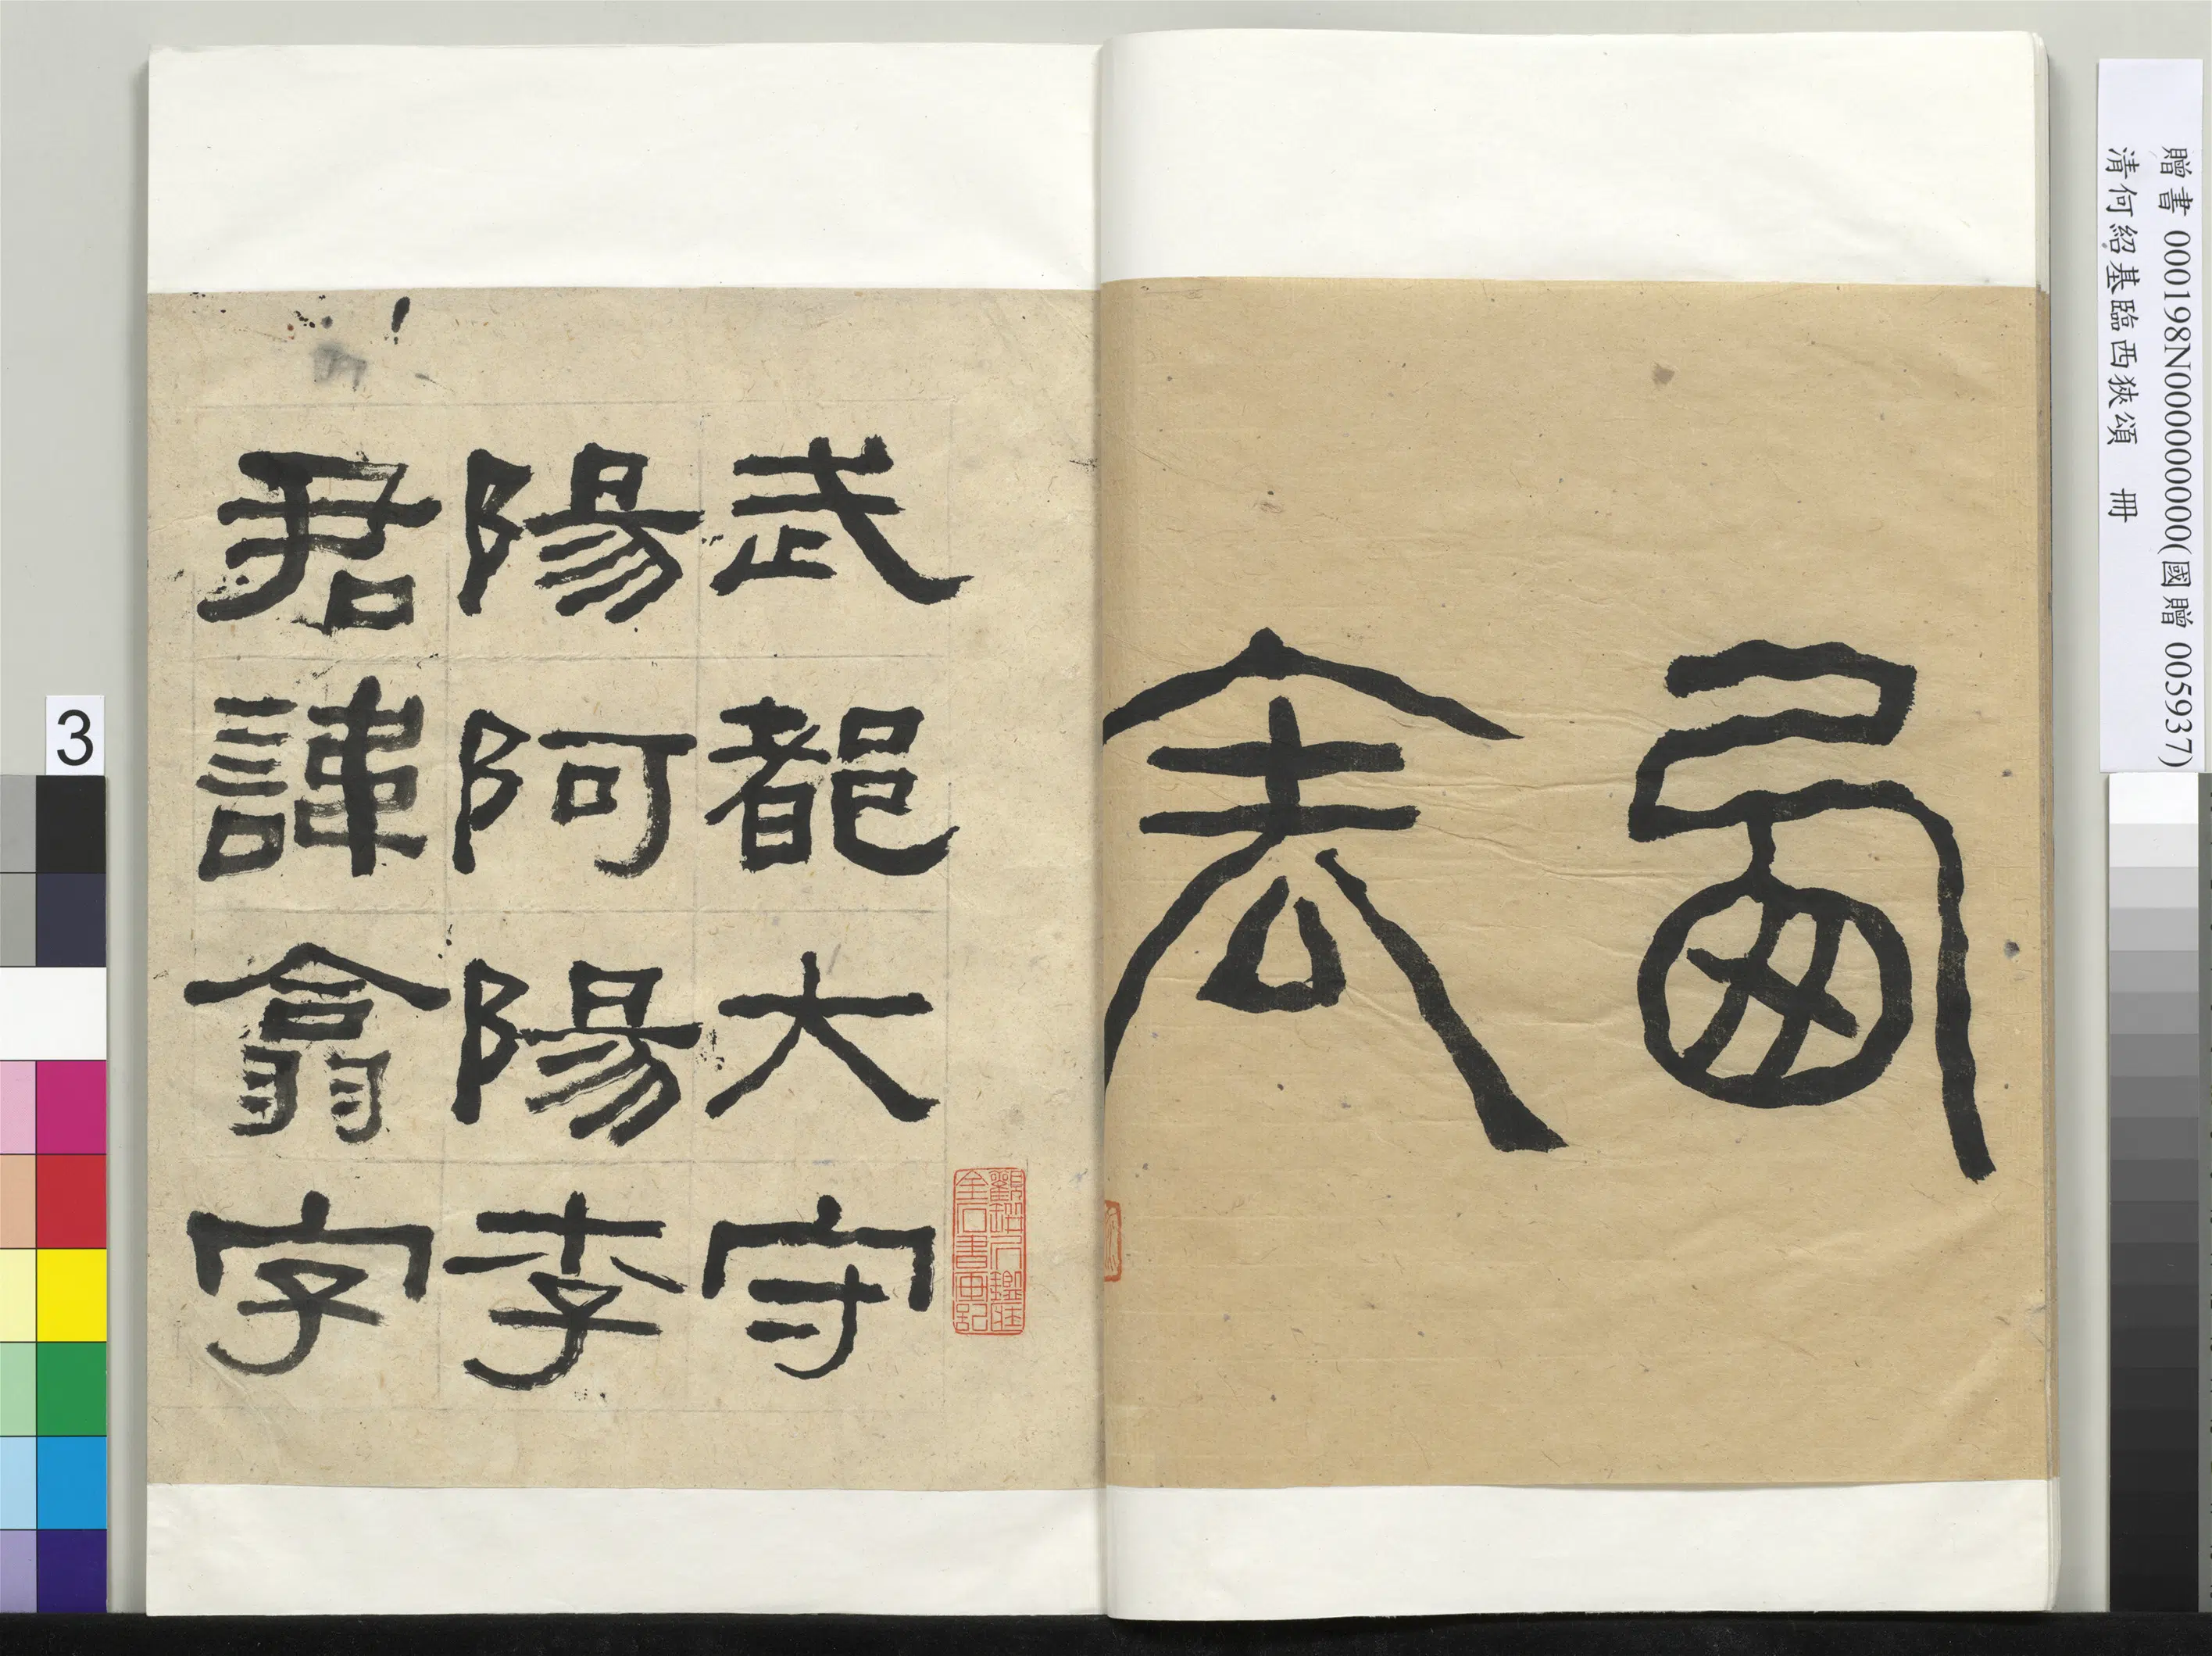 贈書 000198N000000000(國贈 005937)
清何紹基臨西狹頌 冊
西
表
武都大守
陽阿陽李
君諱翕字
3